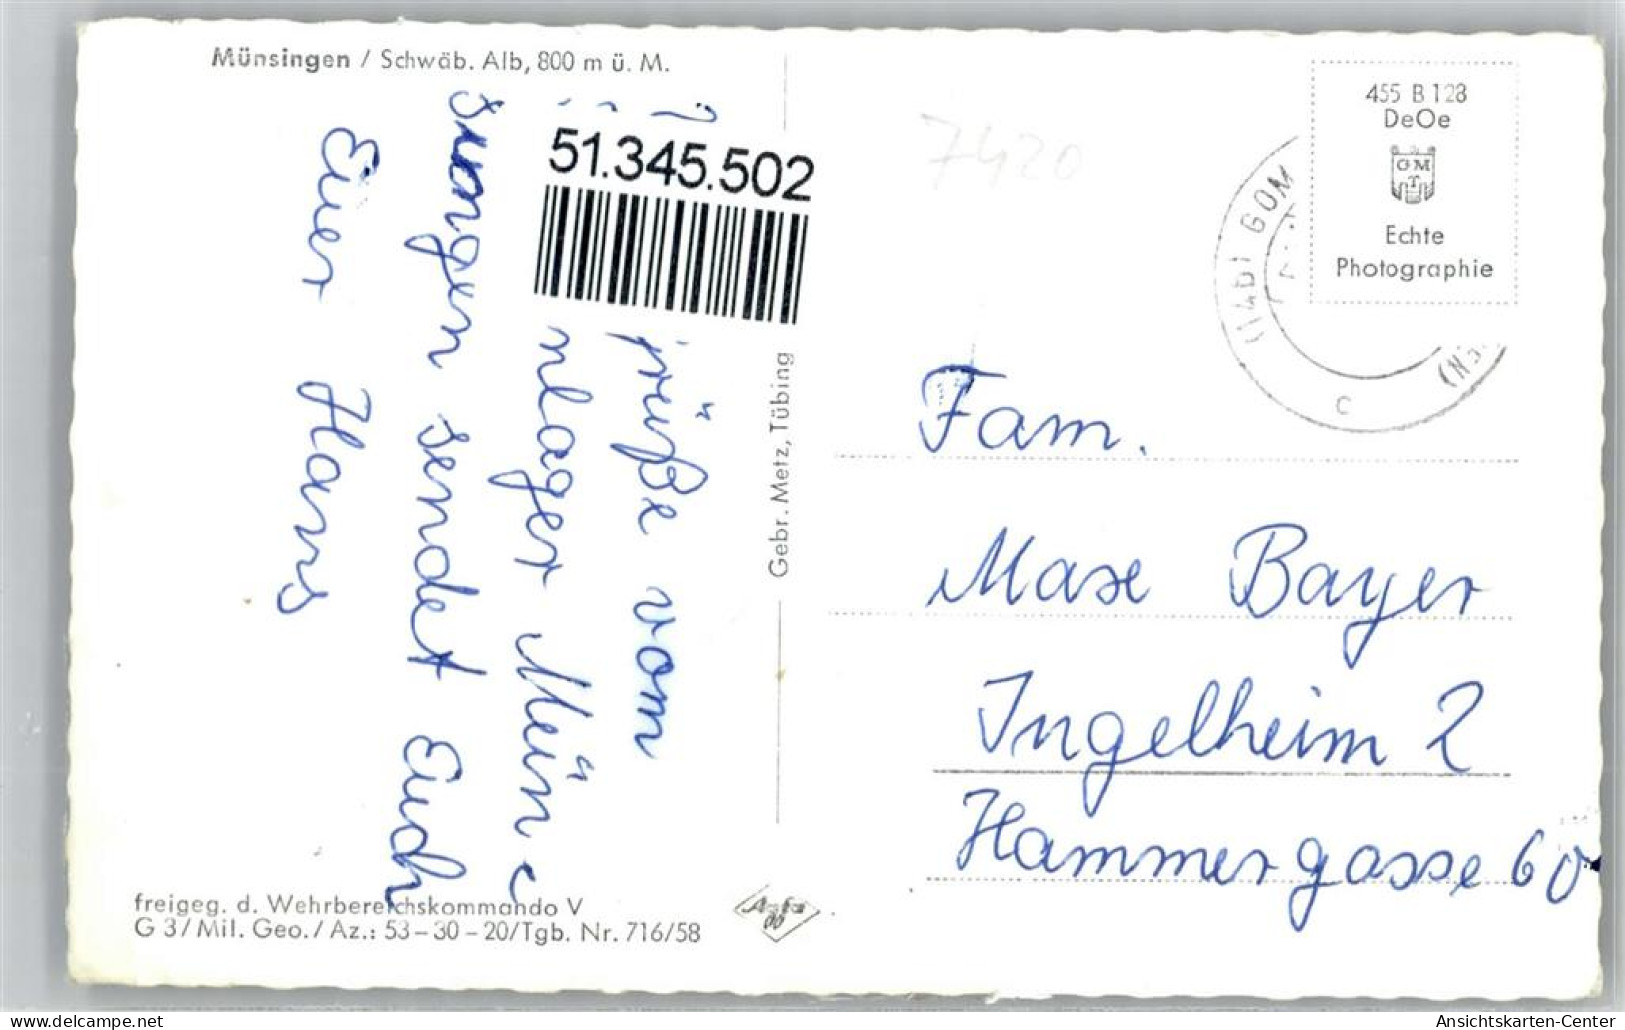 Münsingen / Schwäb. Alb, 800 m ü. M.
51.345.502
rüße vom
nlager Mün
singen sendet Euch
Euer Hans
Gebr. Metz, Tübing
7420
GOM
455 B 128
DeOe
GM
T
Echte
Photographie
Fam.
Max Bayer
Ingelheim 2
Hammergasse 60
freigeg. d. Wehrbereichskommando V
G 3/Mil. Geo./Az.: 53-30-20/Tgb. Nr. 716/58
delcampe.net
Ansichtskarten-Center